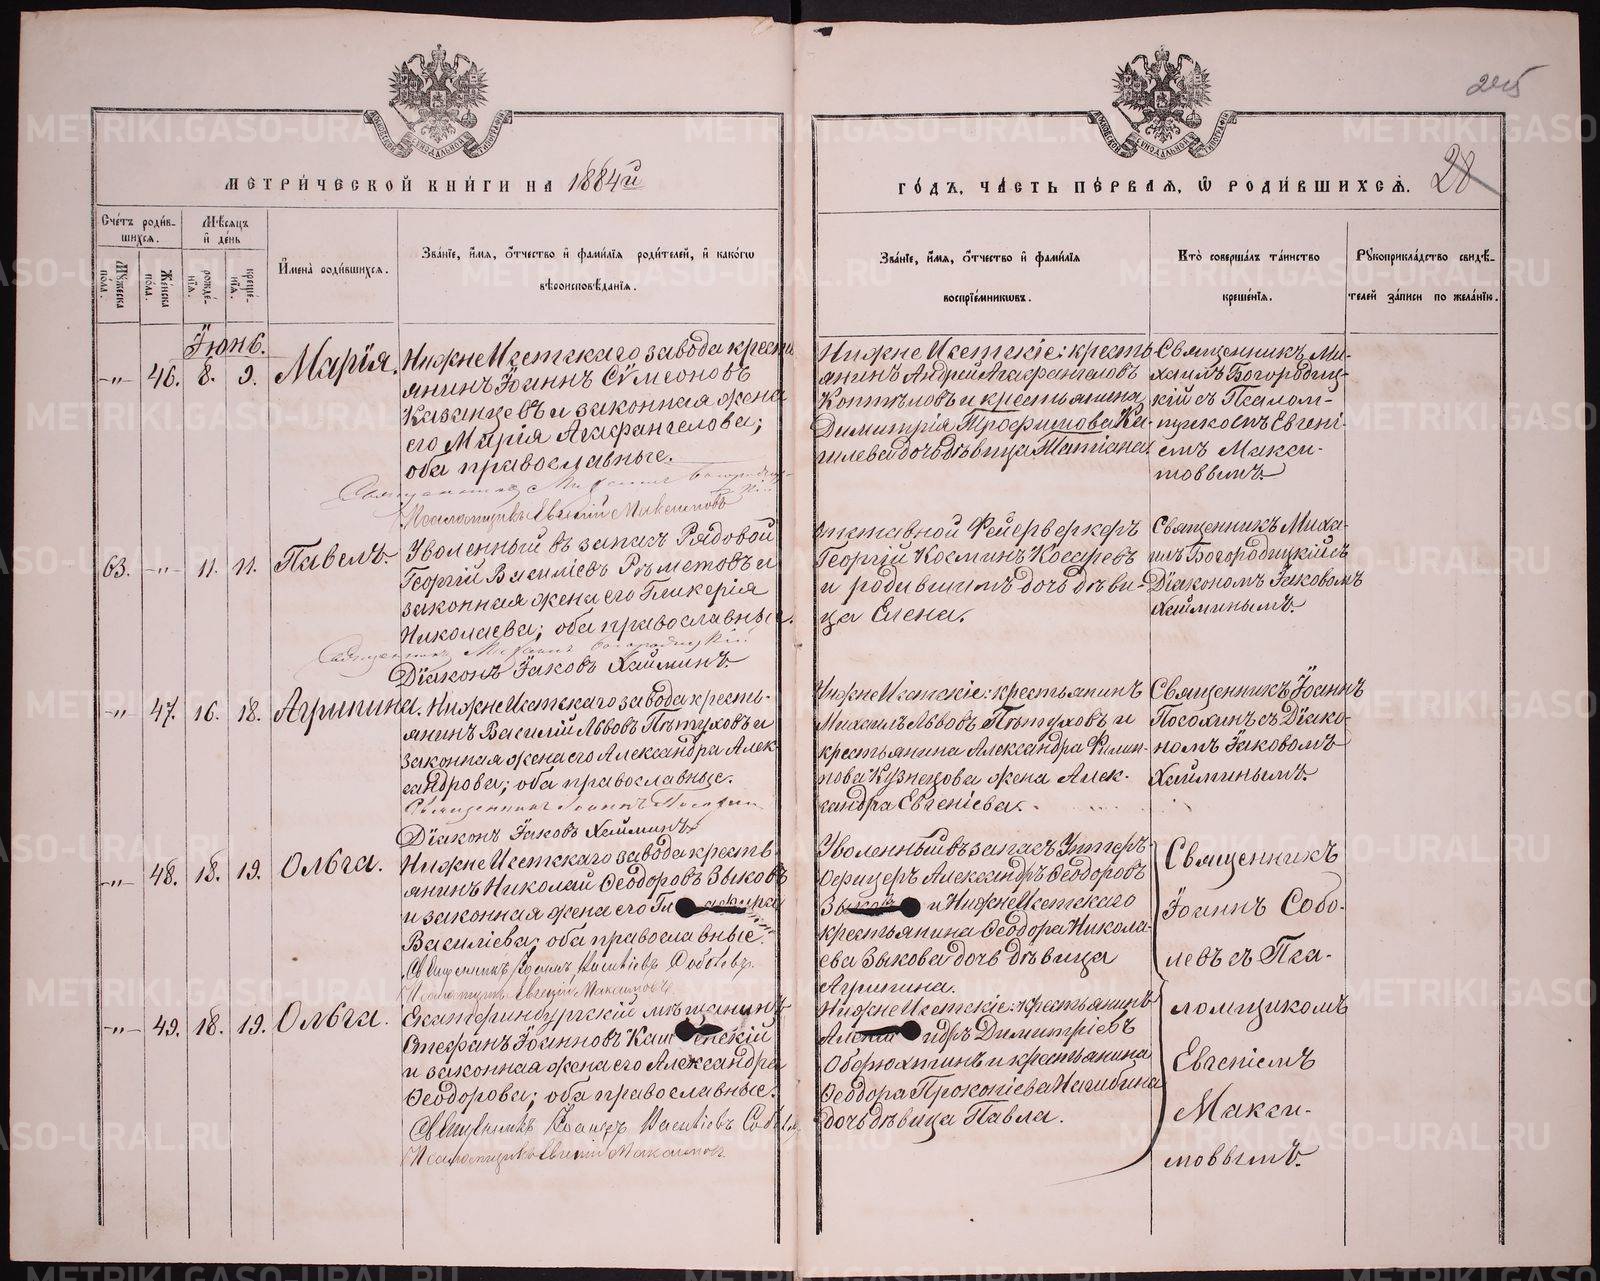 245
28
МЕТРИЧЕСКОЙ КНИГИ НА 1884й
ГОДЪ, ЧАСТЬ ПЕРВАЯ, Ѡ РОДИВШИХСЯ.
Счетъ родив-
шихся.
Мужеска
пола.
Женска
пола.
Мѣсяцъ
и день
рожде-
нія.
креще-
нія.
Имена родившихся.
Званіе, имя, отчество и фамилія родителей, и какогѡ
вѣроисповѣданія.
Званіе, имя, отчество и фамилія
воспріемниковъ.
Кто совершалъ таинство
крещенія.
Рукоприкладство свидѣ-
телей записи по желанію.
Іюнь.
-"- 46. 8. 9. Марія.
НижнеИсетскаго завода кресть
янинъ Іоаннъ Сѵмеоновъ
Казанцевъ и законная жена
его Марія Агафангелова;
оба православные.
Священникъ Михаилъ Богородиц-
кій
Псаломщикъ Евгеній Максимовъ
НижнеИсетскіе: кресть
янинъ Андрей Агафангеловъ
Коптѣловъ и крестьянина
Димитрія Трофимова Ки-
дочь дѣвица Татіана.
Священникъ Ми-
хаилъ Богородиц-
кій съ Псалом-
щикомъ Евгені-
емъ Макси-
мовымъ.
63. -"- 11. 11. Павелъ.
Уволенный въ запасъ Рядовой
Георгій Василіевъ Рѣметовъ и
законная жена его Гликерія
Николаева; оба православные.
Священникъ Михаилъ Богородицкій
Діаконъ Іаковъ Хайминъ.
Отставной Фейерверкеръ
Георгій Косминъ Косаревъ
и родившимъ дочь дѣви-
ца Елена.
Священникъ Миха-
илъ Богородицкій съ
Діакономъ Іаковомъ
Хайминымъ.
-"- 47. 16. 18. Агрипина.
НижнеИсетскаго завода кресть-
янинъ Василій Львовъ Пѣтуховъ и
законная жена его Александра Алек-
сандрова; оба православные.
Священникъ Іоаннъ Посохинъ
Діаконъ Іаковъ Хайминъ
НижнеИсетскіе: крестьянинъ
Михаилъ Львовъ Пѣтуховъ и
крестьянина Александра Филип-
пова Кузнецова жена Алек-
сандра Евгеніева.
Священникъ Іоаннъ
Посохинъ съ Діако-
номъ Іаковомъ
Хайминымъ.
-"- 48. 18. 19. Ольга.
НижнеИсетскаго завода кресть-
янинъ Николай Ѳеодоровъ Зыковъ
и законная жена его Гл
Василіева; оба православные.
Священникъ Іоаннъ Соболевъ.
Псаломщикъ Евгеній Максимовъ
Уволенный въ запасъ Унтеръ
Офицеръ Александръ Ѳеодоровъ
Зыковъ и НижнеИсетскаго
крестьянина Ѳеодора Никола-
ева Зыкова дочь дѣвица
Агрипина.
Священникъ
Іоаннъ Собо-
левъ съ Пса-
ломщикомъ
Евгеніемъ
Макси-
мовымъ.
-"- 49. 18. 19. Ольга.
Екатеринбургскій мѣщанинъ
Стефанъ Іоанновъ
и законная жена его Александра
Ѳеодорова; оба православные.
Священникъ Іоаннъ Соболевъ
Псаломщикъ Евгеній Максимовъ
НижнеИсетскіе: крестьянинъ
Димитріевъ
Оборюхтинъ и крестьянина
Ѳеодора Прокопіева Нагибина
дочь дѣвица Павла.
METRIKI.GASO-URAL.RU